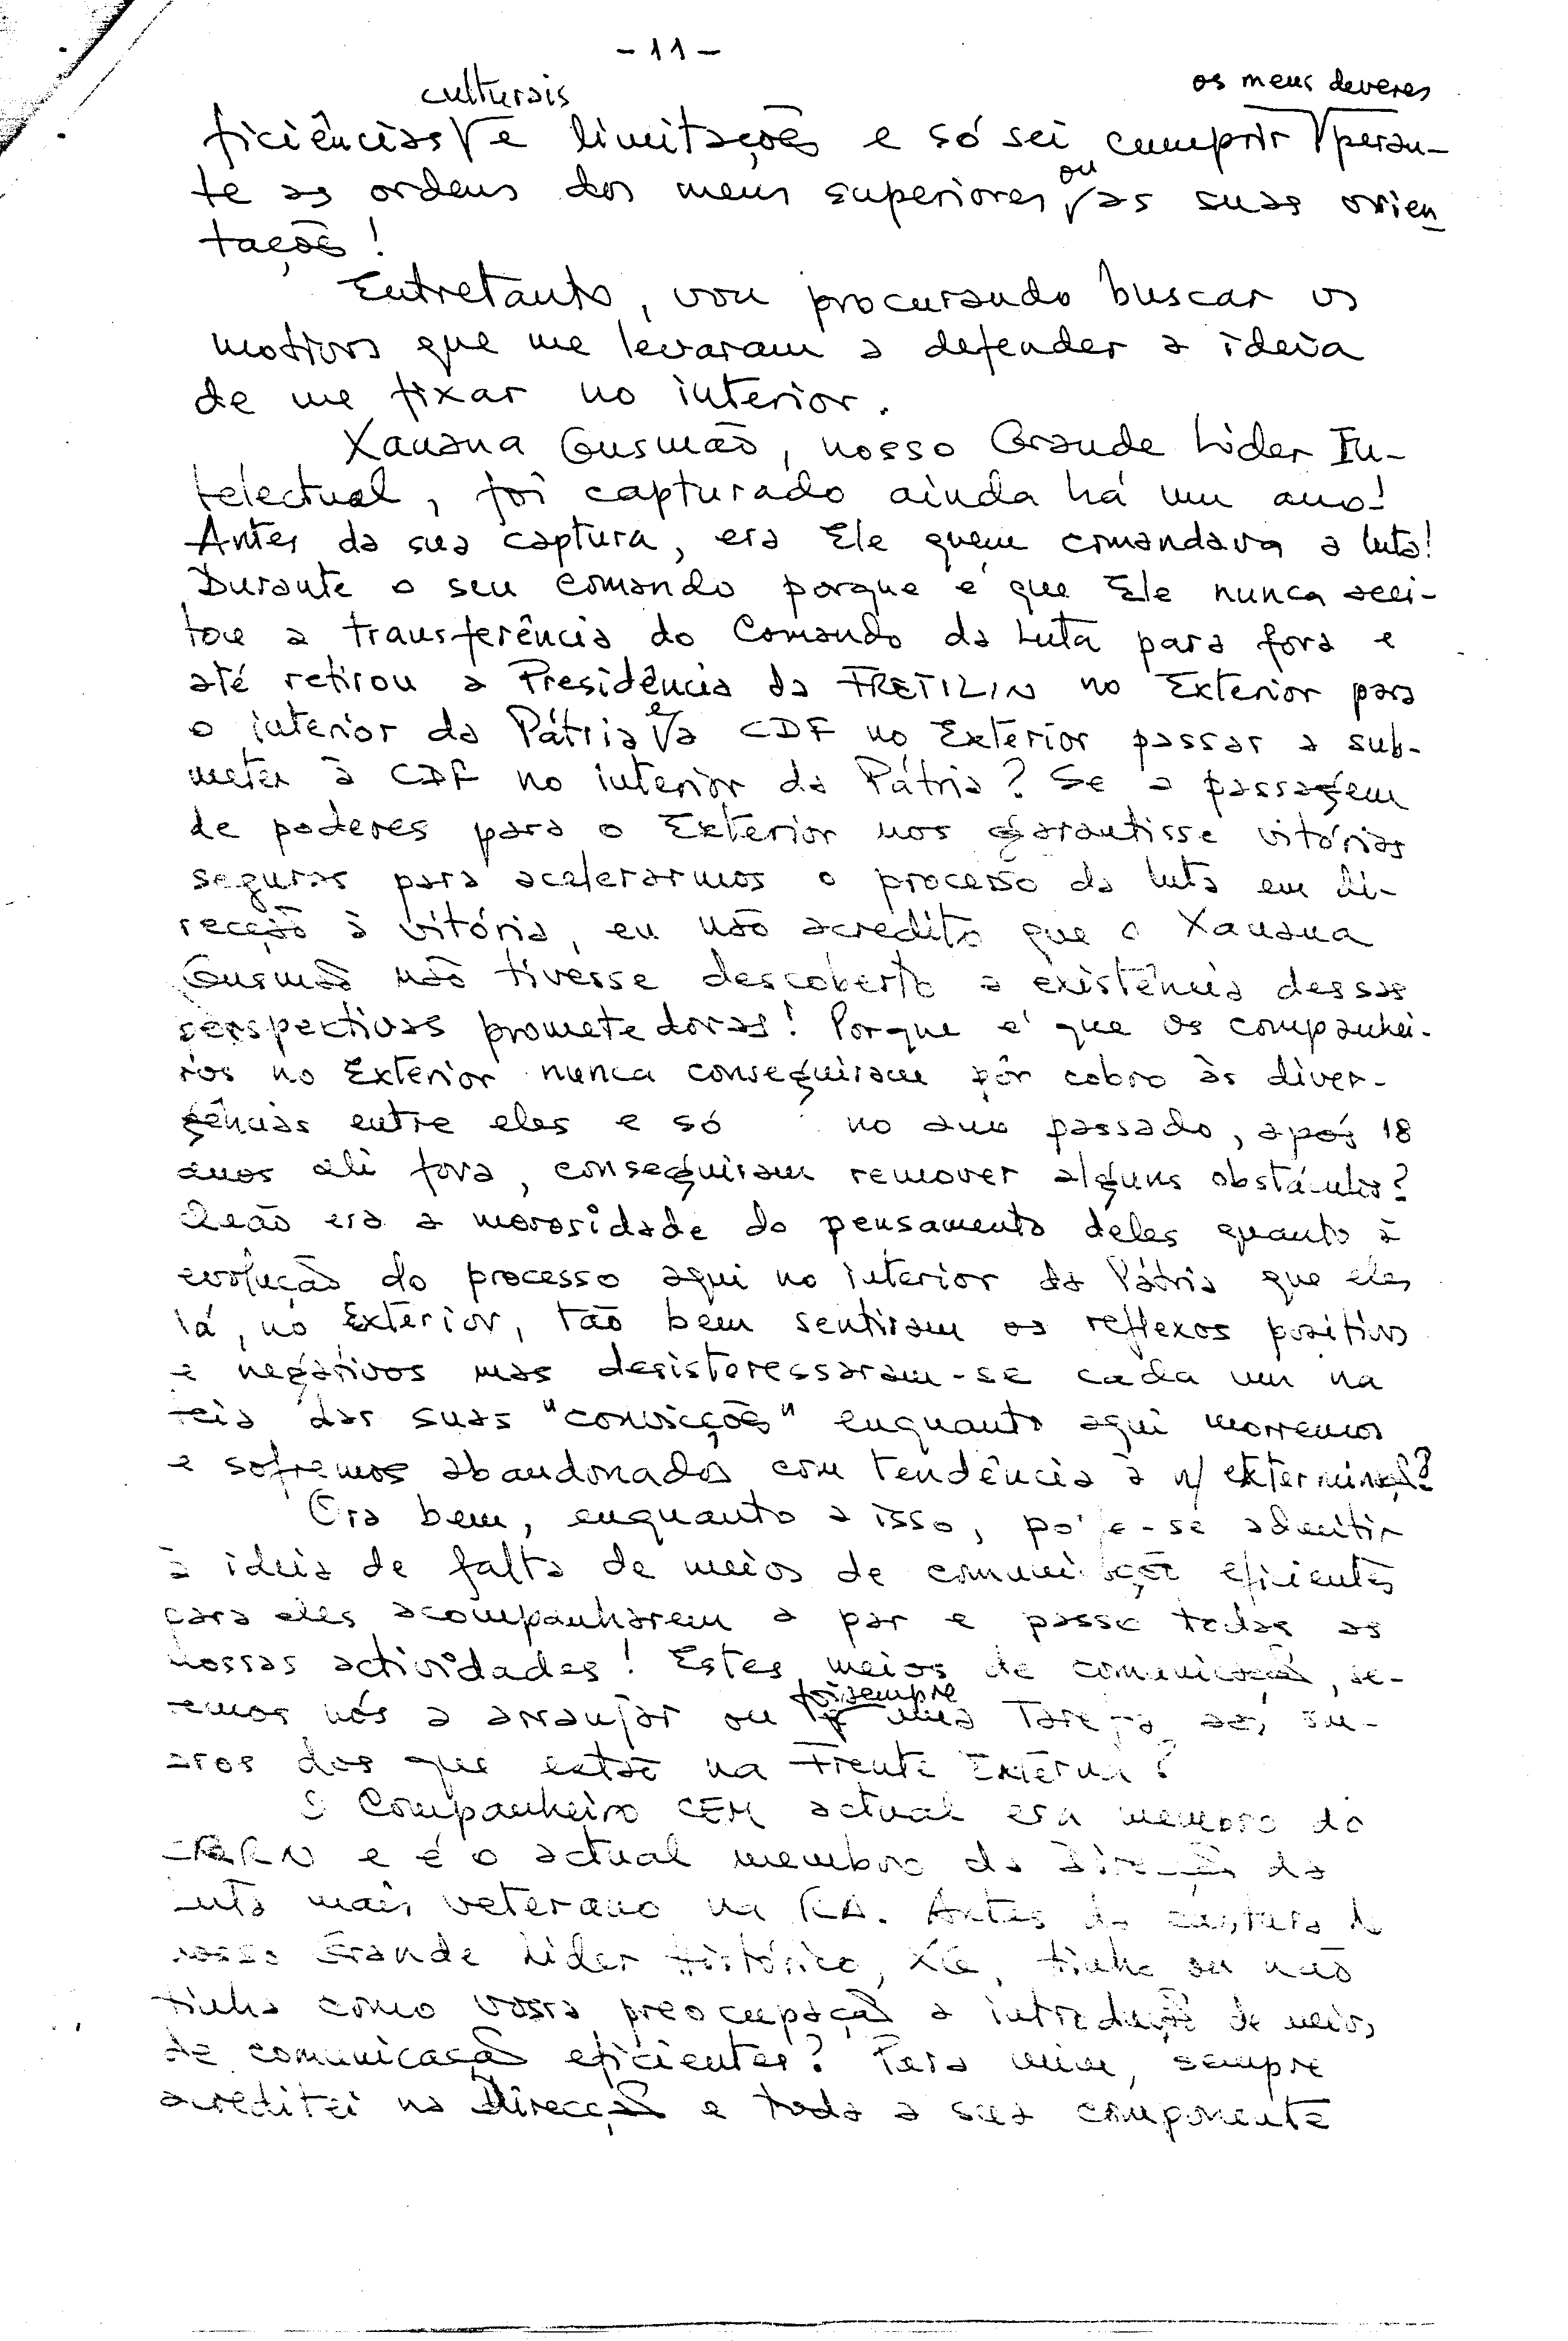 - 11 -
culturais os meus deveres
ficiências e limitações e só sei cumprir peran-
te as ordens dos meus superiores, ou as suas orien
tações!
Entretanto, vou procurando buscar os
motivos que me levaram a defender a ideia
de me fixar no interior.
Xanana Gusmão, nosso Grande Lider In-
telectual, foi capturado ainda há um ano!
Antes da sua captura, era Ele quem comandava a luta!
Durante o seu comando porque é que Ele nunca acei-
tou a transferência do Comando da Luta para fora e
até retirou a Presidência da FRETILIN no Exterior para
o interior da Pátria e a CDF no Exterior passar a sub-
meter à CDF no interior da Pátria? Se a passagem
de poderes para o Exterior nos garantisse vitórias
seguras para acelerarmos o processo da luta em di-
recção à vitória, eu não acredito que o Xanana
Gusmão não tivesse descoberto a existência dessas
perspectivas prometedoras! Porque é que os companhei-
ros no Exterior nunca conseguiram pôr cobro às diver-
gências entre eles e só no ano passado, após 18
anos ali fora, conseguiram remover alguns obstáculos?
Qeão era a morosidade do pensamento deles quanto à
evolução do processo aqui no interior da Pátria que eles
lá, no Exterior, tão bem sentiram os reflexos positivos
e negativos mas desisteressaram-se cada um na
teia das suas "convicções" enquanto aqui morremos
e sofremos abandonados com tendência à n/ exterminaç?
Ora bem, enquanto a isso, pode-se admitir
à ideia de falta de meios de comunicação eficientes
para eles acompanharem a par e passo todas as
nossas actividades! Estes meios de comunicação, se-
remos nós a arranjar ou foi sempre uma Tarefa
dos que estão na Frente Externa?
O Companheiro CEM actual era membro do
CRRN e é o actual membro da Direcção da
Luta mais veterano na RA. Antes da captura do
nosso Grande Lider Histórico, XG, tinha ou não
tinha como vossa preocupação a introdução de meios
de comunicação eficientes? Para mim, sempre
acreditei na Direcção e toda a sua componente